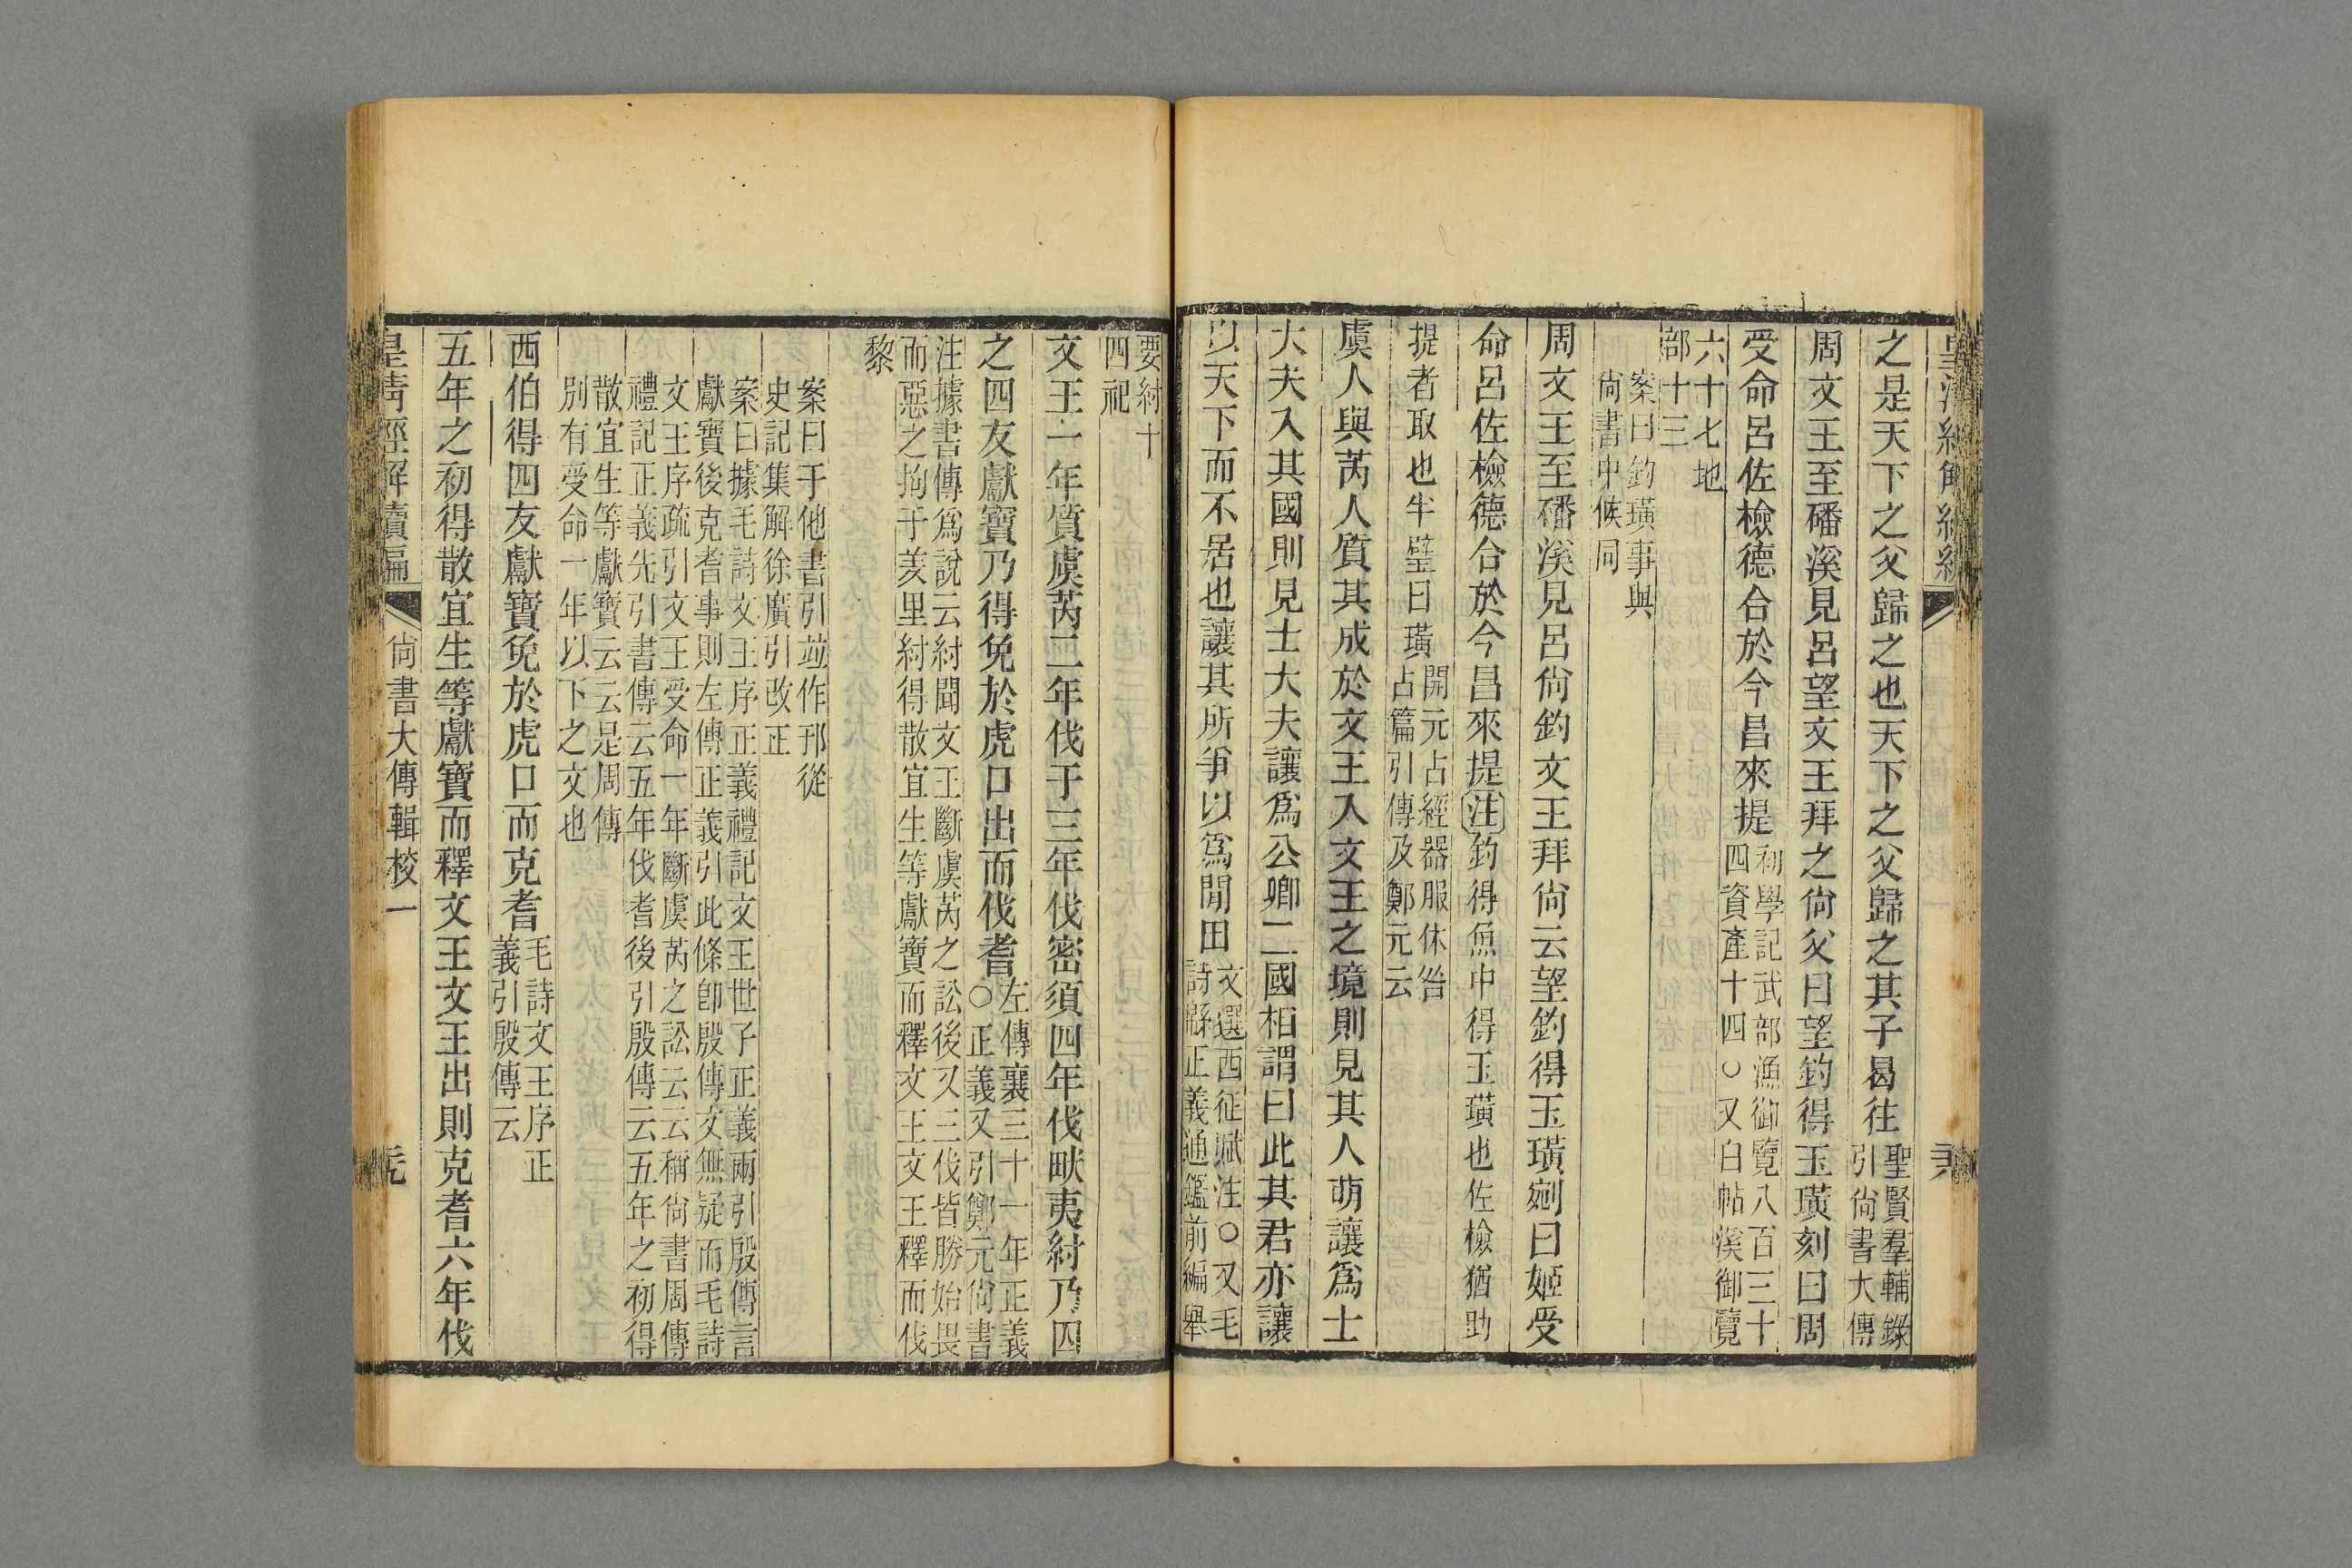 之是天下之父歸之也天下之父歸之其子曷往聖賢羣輔錄
引尙書大傳
周文王至磻溪見呂望文王拜之尙父曰望釣得玉璜刻曰周
受命呂佐檢德合於今昌來提初學記武部漁御覽八百三十
四資產十四○又白帖溪御覽
六十七地
部十三
案曰釣璜事與
尙書中候同
周文王至磻溪見呂尙釣文王拜尙云望釣得玉璜剜曰姬受
命呂佐檢德合於今昌來提注釣得魚中得玉璜也佐檢猶助
提者取也半璧曰璜開元占經器服休咎
占篇引傳及鄭元云
虞人與芮人質其成於文王入文王之境則見其人萌讓爲士
大夫入其國則見士大夫讓爲公卿二國相謂曰此其君亦讓
以天下而不居也讓其所爭以爲閒田文選西征賦注○又毛
詩緜正義通鑑前編舉
要紂十
四祀
文王一年質虞芮二年伐于三年伐密須四年伐畎夷紂乃囚
之四友獻寶乃得免於虎口出而伐耆左傳襄三十一年正義
○正義又引鄭元尙書
注據書傳爲說云紂聞文王斷虞芮之訟後又三伐皆勝始畏
而惡之拘于羑里紂得散宜生等獻寶而釋文王文王釋而伐
黎
案曰于他書引竝作邘從
史記集解徐廣引改正
案曰據毛詩文王序正義禮記文王世子正義兩引殷傳言
獻寶後克耆事則左傳正義引此條卽殷傳文無疑而毛詩
文王序疏引文王受命一年斷虞芮之訟云云稱尙書周傳
禮記正義先引書傳云五年伐耆後引殷傳云五年之初得
散宜生等獻寶云云是周傳
別有受命一年以下之文也
西伯得四友獻寶免於虎口而克耆毛詩文王序正
義引殷傳云
五年之初得散宜生等獻寶而釋文王文王出則克耆六年伐
皇淸經解續編
尙書大傳輯校一